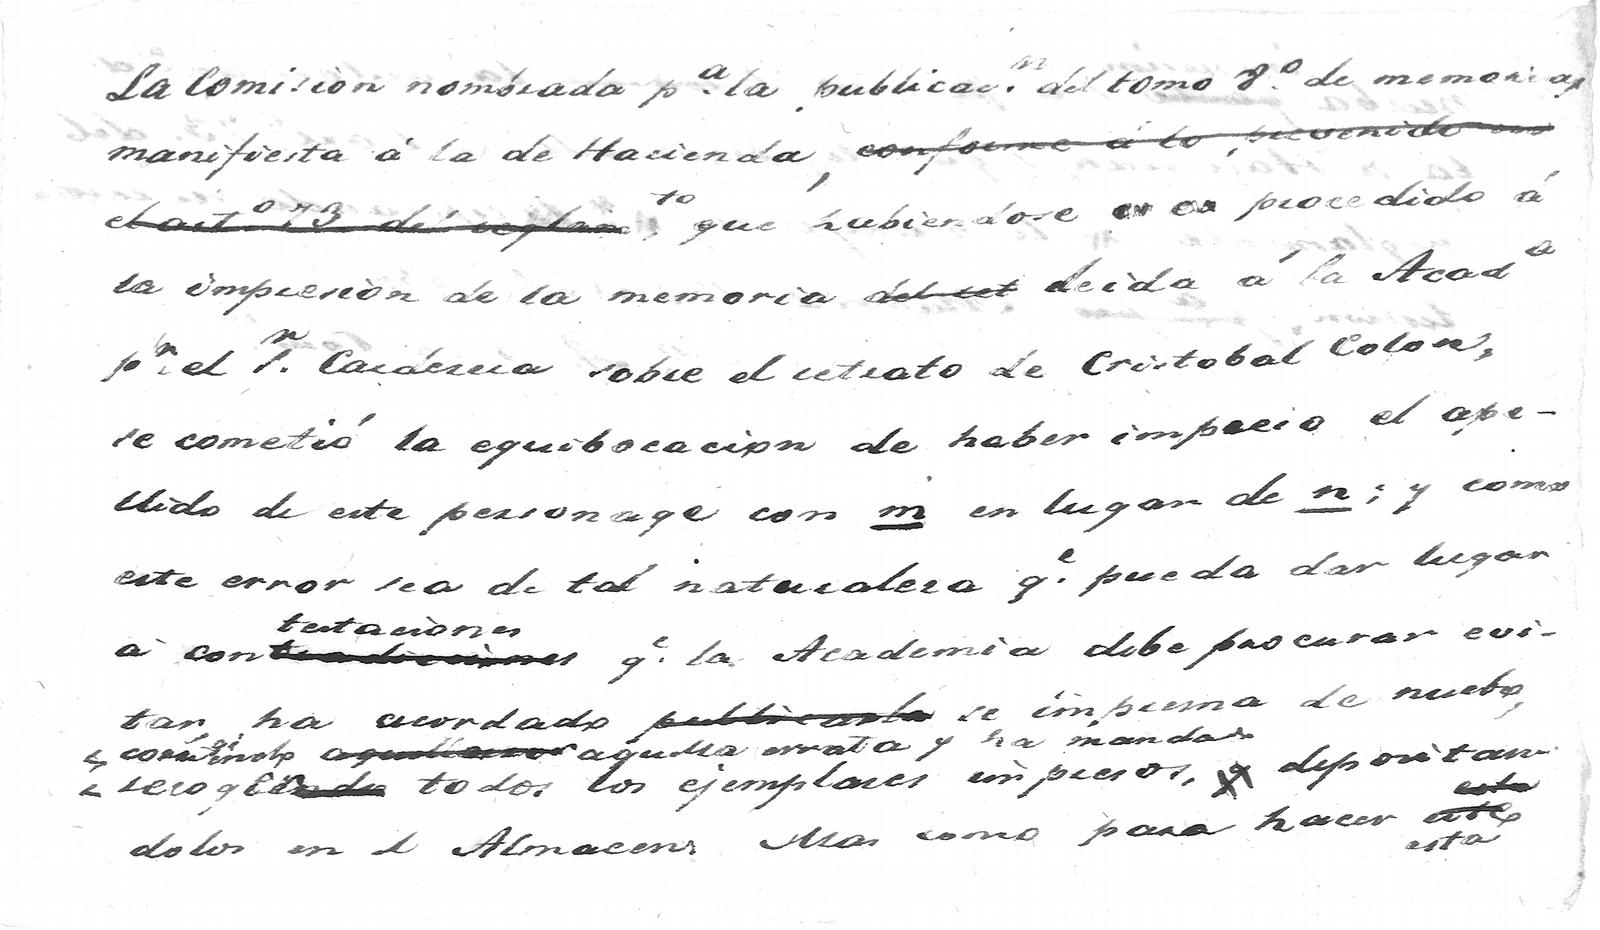 La Comision nombrada p.ª la publicac.n del tomo 8.º de memorias
manifiesta á la de Hacienda, conforme á lo prevenido en
el art.º 73 del reglam.to que hubiendose procedido á
la impresion de la memoria del set leida á la Acad.a
p.r el S.r Carderera sobre el retrato de Cristobal Colon,
se cometió la equibocacion de haber impreso el ape-
llido de este personage con m en lugar de n; y como
este error sea de tal naturaleza q.e pueda dar lugar
testaciones
á contradicciones q.e la Academia debe procurar evi-
tar, ha acordado publicarla se imprima de nuebo,
corrigiendo aquella errata y ha mandado
recogiendo todos los ejemplares impresos, y depositan-
esta
dolos en el Almacen. Mas como para hacer este
esta